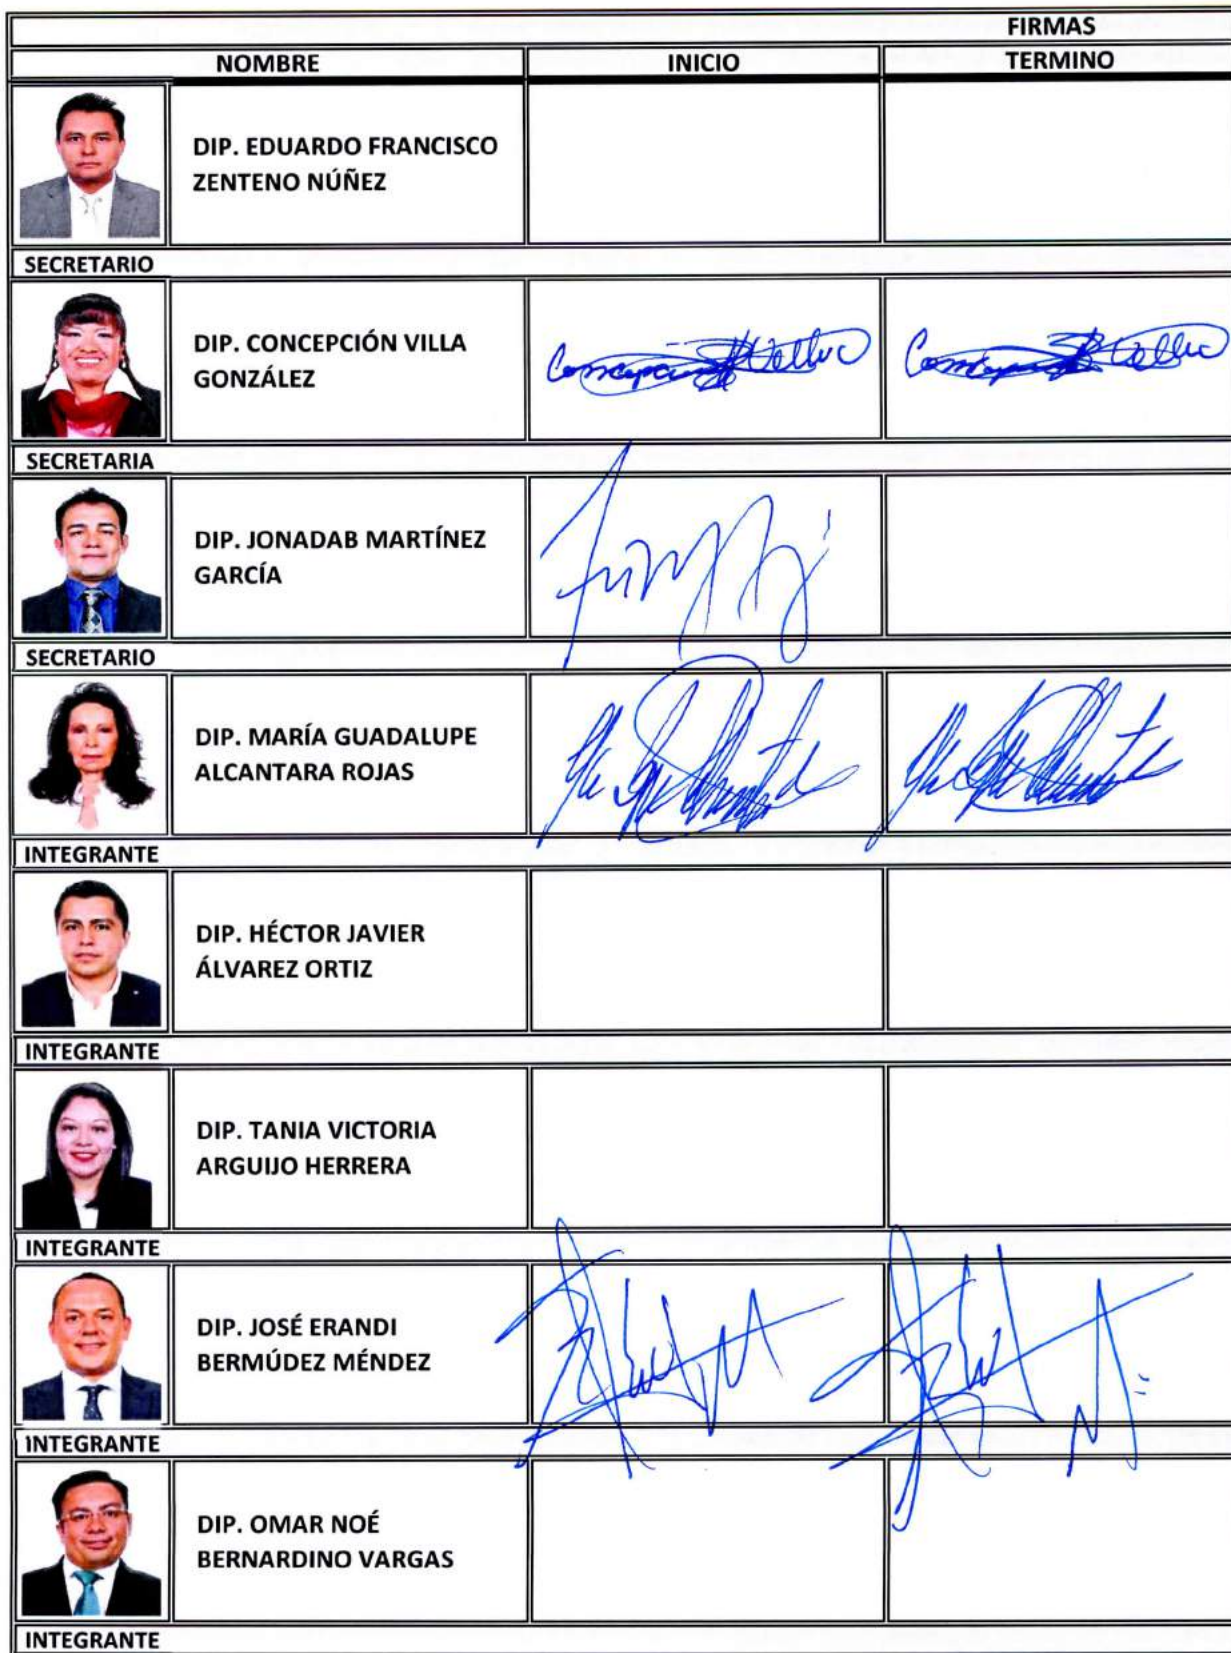 FIRMAS
NOMBRE INICIO TERMINO
DIP. EDUARDO FRANCISCO
ZENTENO NÚÑEZ
SECRETARIO
DIP. CONCEPCIÓN VILLA
GONZÁLEZ
SECRETARIA
DIP. JONADAB MARTÍNEZ
GARCÍA
SECRETARIO
DIP. MARÍA GUADALUPE
ALCANTARA ROJAS
INTEGRANTE
DIP. HÉCTOR JAVIER
ÁLVAREZ ORTIZ
INTEGRANTE
DIP. TANIA VICTORIA
ARGUIJO HERRERA
INTEGRANTE
DIP. JOSÉ ERANDI
BERMÚDEZ MÉNDEZ
INTEGRANTE
DIP. OMAR NOÉ
BERNARDINO VARGAS
INTEGRANTE